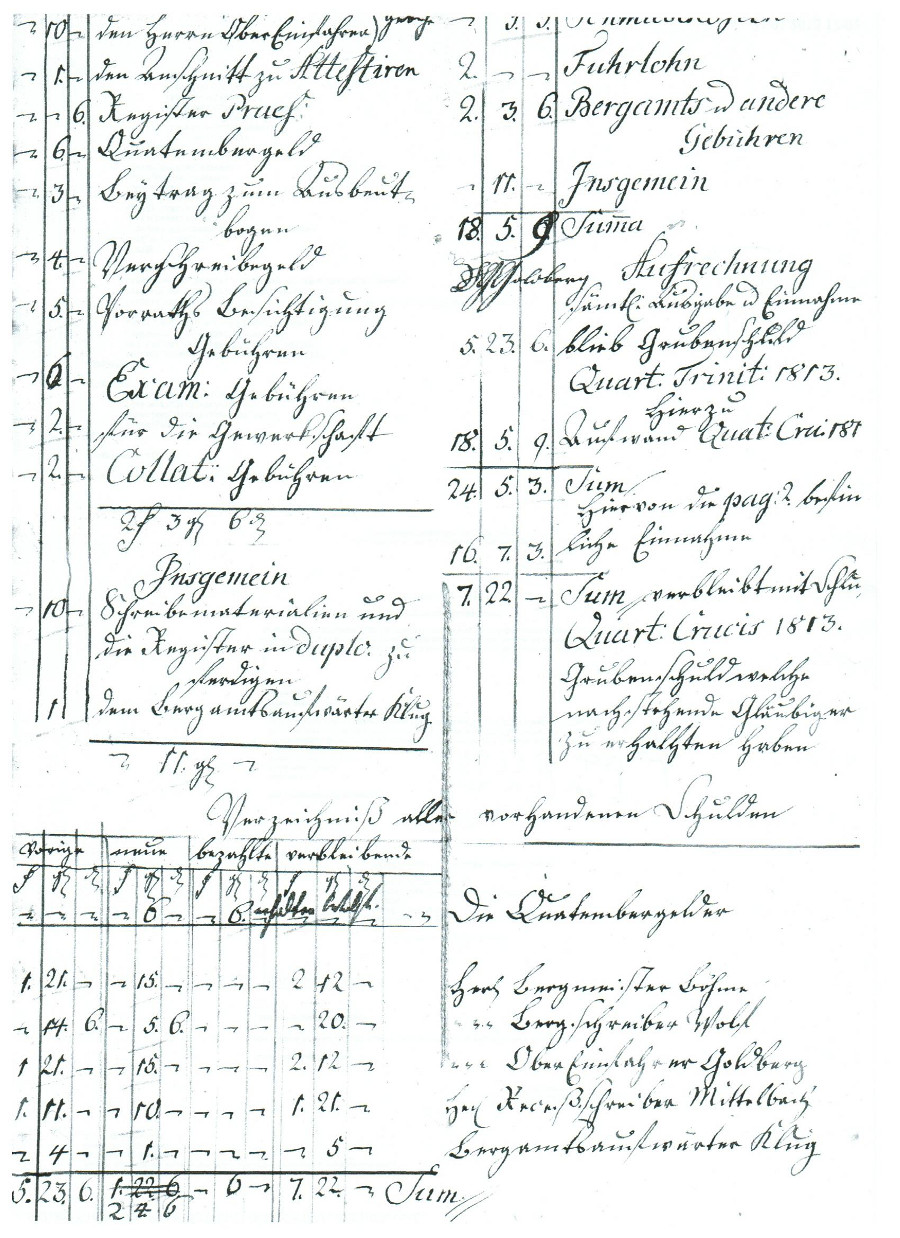 ¬ 10 ¬ den Herrn OberEinfahrer
¬ 1. ¬ den Anschnitt zu Attestiren
¬ ¬ 6. Register Praes:
¬ 6 ¬ Quatembergeld
¬ 3 ¬ Beytrag zum Ausbeut¬
bogen
¬ 4. ¬ Verschreibegeld
¬ 5. ¬ Vorraths Besichtigung
Gebühren
¬ 6 ¬ Exam: Gebühren
¬ 2. ¬ für die Gewerkschaft
¬ 2. ¬ Collat: Gebühren
2 f 3 gl 6 d
Insgemein
¬ 10 ¬ Schreibematerialien und
die Register in duplo. zu
fertigen
1 dem Bergamtsaufwärter Klug
¬ 11. gl ¬
¬ 3. 3.
2. ¬ ¬ Fuhrlohn
2. 3. 6. Bergamts u andere
Gebühren
¬ 11. ¬ Insgemein
18. 5. 9 Summa
Goldberg Aufrechnung
sämtl: Ausgabe u Einnahme
5. 23. 6. blieb Grubenschuld
Quart: Trinit: 1813.
Hierzu
18. 5. 9. Aufwand Quat: Cru: 181
24. 5. 3. Sum
Hiervon die pag: 2. befin
16. 7. 3. liche Einnahme
7. 22 ¬ Sum verbleibt mit Schlu
Quart: Crucis 1813.
Grubenschuld welche
nachstehende Gläubiger
zu erhalten haben
Verzeichniß aller vorhandenen Schulden
vorige neue bezahlte verbleibende
f gl d f gl d f gl d f gl d
¬ ¬ ¬ ¬ 6 ¬ ¬ 6. ¬ ¬ Die Quatembergelder
1. 21. ¬ ¬ 15. ¬ ¬ ¬ ¬ 2 12 ¬ Herr Bergmeister Böhme
¬ 14. 6. ¬ 5. 6. ¬ ¬ ¬ ¬ 20. ¬ Bergschreiber Wolf
1 21. ¬ ¬ 15. ¬ ¬ ¬ ¬ 2. 12 ¬ OberEinfahrer Goldberg
1. 11. ¬ ¬ 10. ¬ ¬ ¬ ¬ 1. 21. ¬ Herr Receßschreiber Mittelbach
¬ 4 ¬ ¬ 1. ¬ ¬ ¬ ¬ ¬ 5 ¬ Bergamtsaufwärter Klug
5. 23. 6. 1. 22. 6 ¬ 6 ¬ 7. 22. ¬ Sum.
2 4. 6